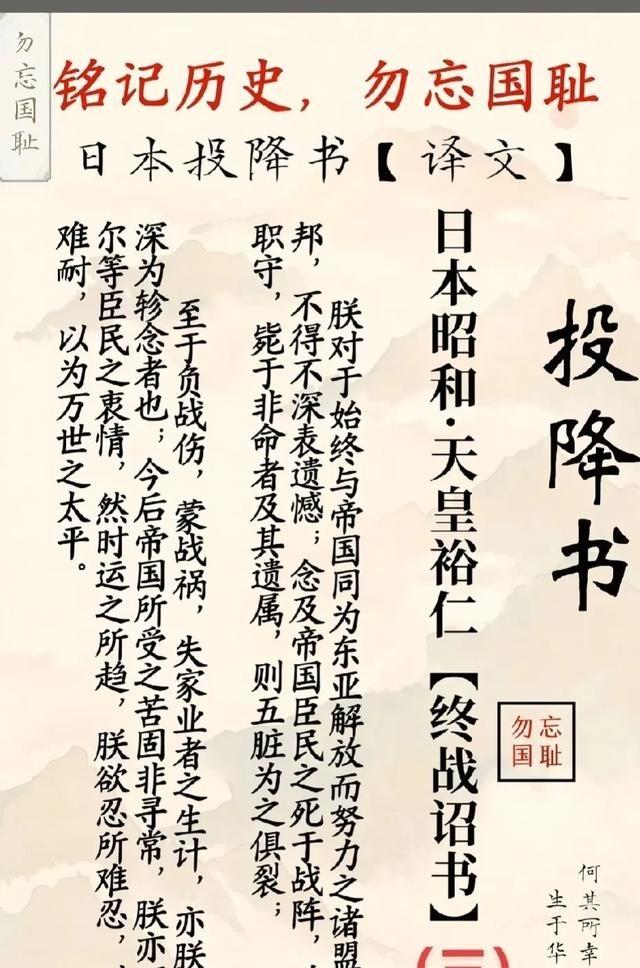 勿忘国耻
铭记历史，勿忘国耻
日本投降书【译文】
投降书
勿忘
国耻
何其所幸
生于华
日本昭和·天皇裕仁【终战诏书】
朕对于始终与帝国同为东亚解放而努力之诸盟
邦，不得不深表遗憾；念及帝国臣民之死于战阵，
职守，毙于非命者及其遗属，则五脏为之俱裂；
至于负战伤，蒙战祸，失家业者之生计，亦朕
深为轸念者也；今后帝国所受之苦固非寻常，朕亦
尔等臣民之衷情，然时运之所趋，朕欲忍所难忍，
难耐，以为万世之太平。